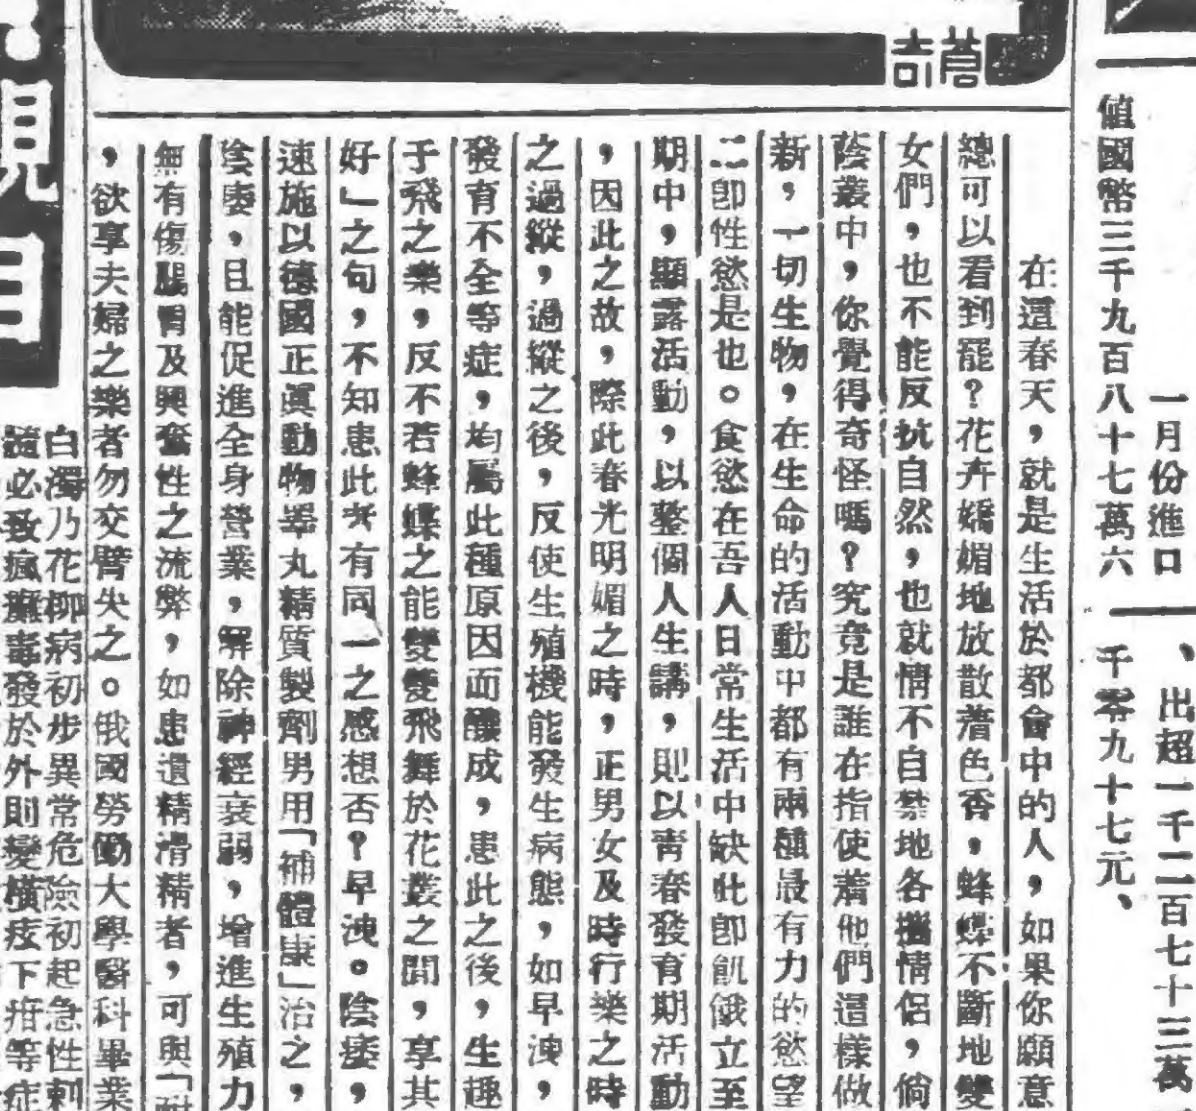 一月份進口
、出超一千二百七十三萬
值國幣三千九百八十七萬六
千零九十七元、
蒼奇
在這春天，就是生活於都會中的人，如果你願意
總可以看到罷？花卉嬌媚地放散着色香，蜂蝶不斷地雙
女們，也不能反抗自然，也就情不自禁地各攜情侶，倘
蔭叢中，你覺得奇怪嗎？究竟是誰在指使着他們這樣做
新，一切生物，在生命的活動中都有兩種最有力的慾望
二即性慾是也。食慾在吾人日常生活中缺此即飢餓立至
期中，顯露活動，以整個人生講，則以青春發育期活動
，因此之故，際此春光明媚之時，正男女及時行樂之時
之過縱，過縱之後，反使生殖機能發生病態，如早洩，
發育不全等症，均屬此種原因而釀成，患此之後，生趣
于飛之樂，反不若蜂蝶之能雙雙飛舞於花叢之間，享其
好」之句，不知患此者有同一之感想否？早洩。陰痿，
速施以德國正眞動物睪丸精質製劑男用「補體康」治之，
陰痿，且能促進全身營業，解除神經衰弱，增進生殖力
無有傷腸胃及興奮性之流弊，如患遺精滑精者，可與「
，欲享夫婦之樂者勿交臂失之。俄國勞働大學醫科畢業
白濁乃花柳病初步異常危險初起急性刺
髓必致瘋癲毒發於外則變橫痃下疳等症